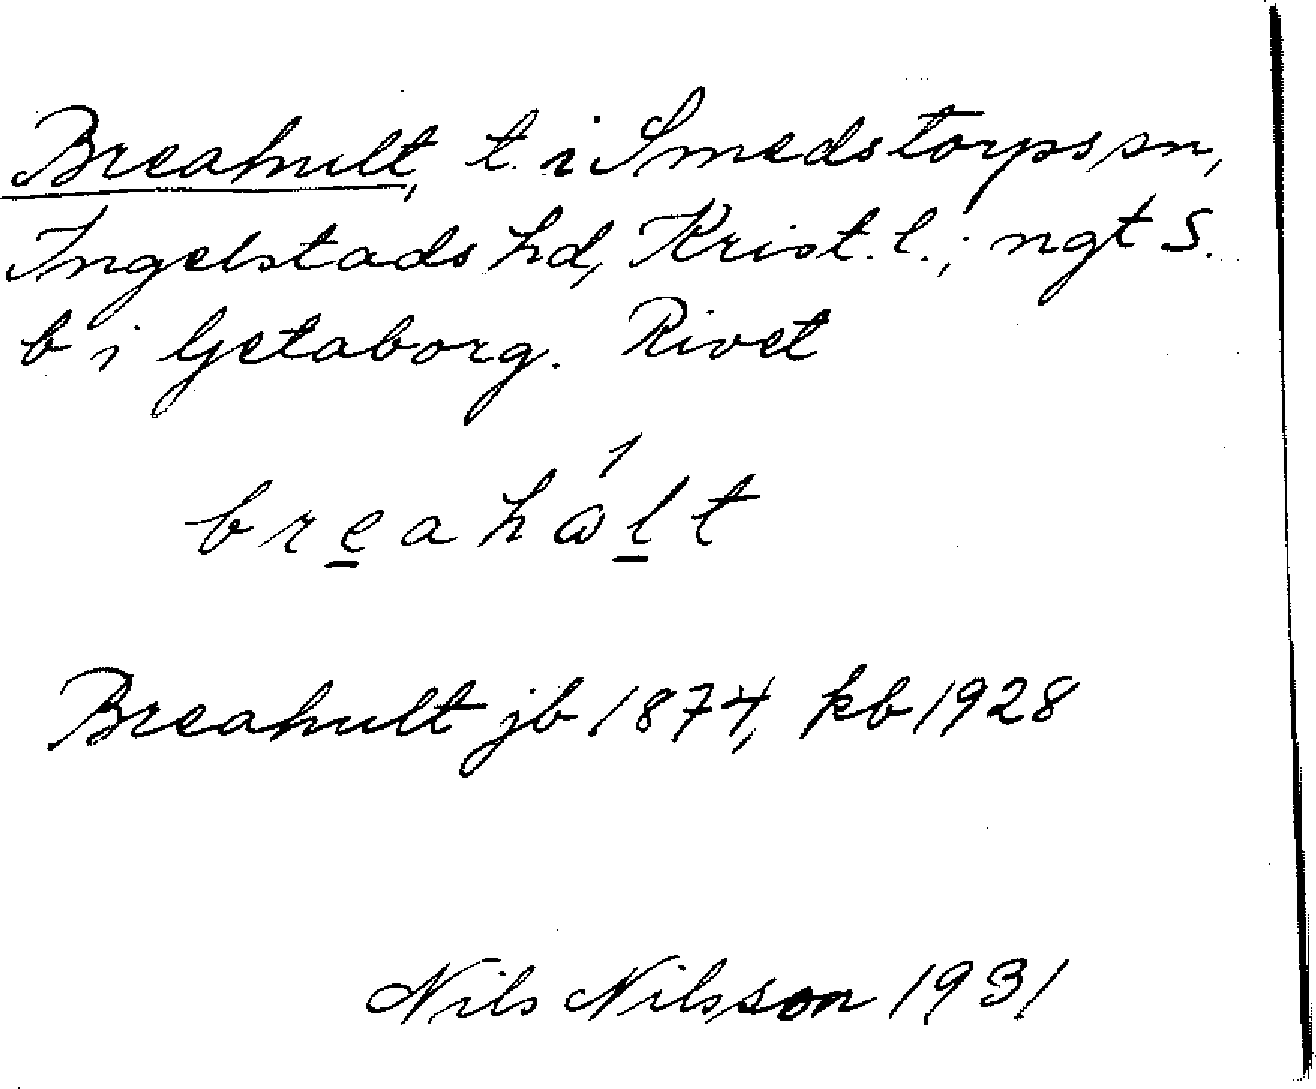 Breahult, t. i Smedstorps sn,
Ingelstads hd, Krist. l.; ngt S.
b i Getaborg. Rivet
breahålt
Breahult jb 1874, kb 1928
Nils Nilsson 1931